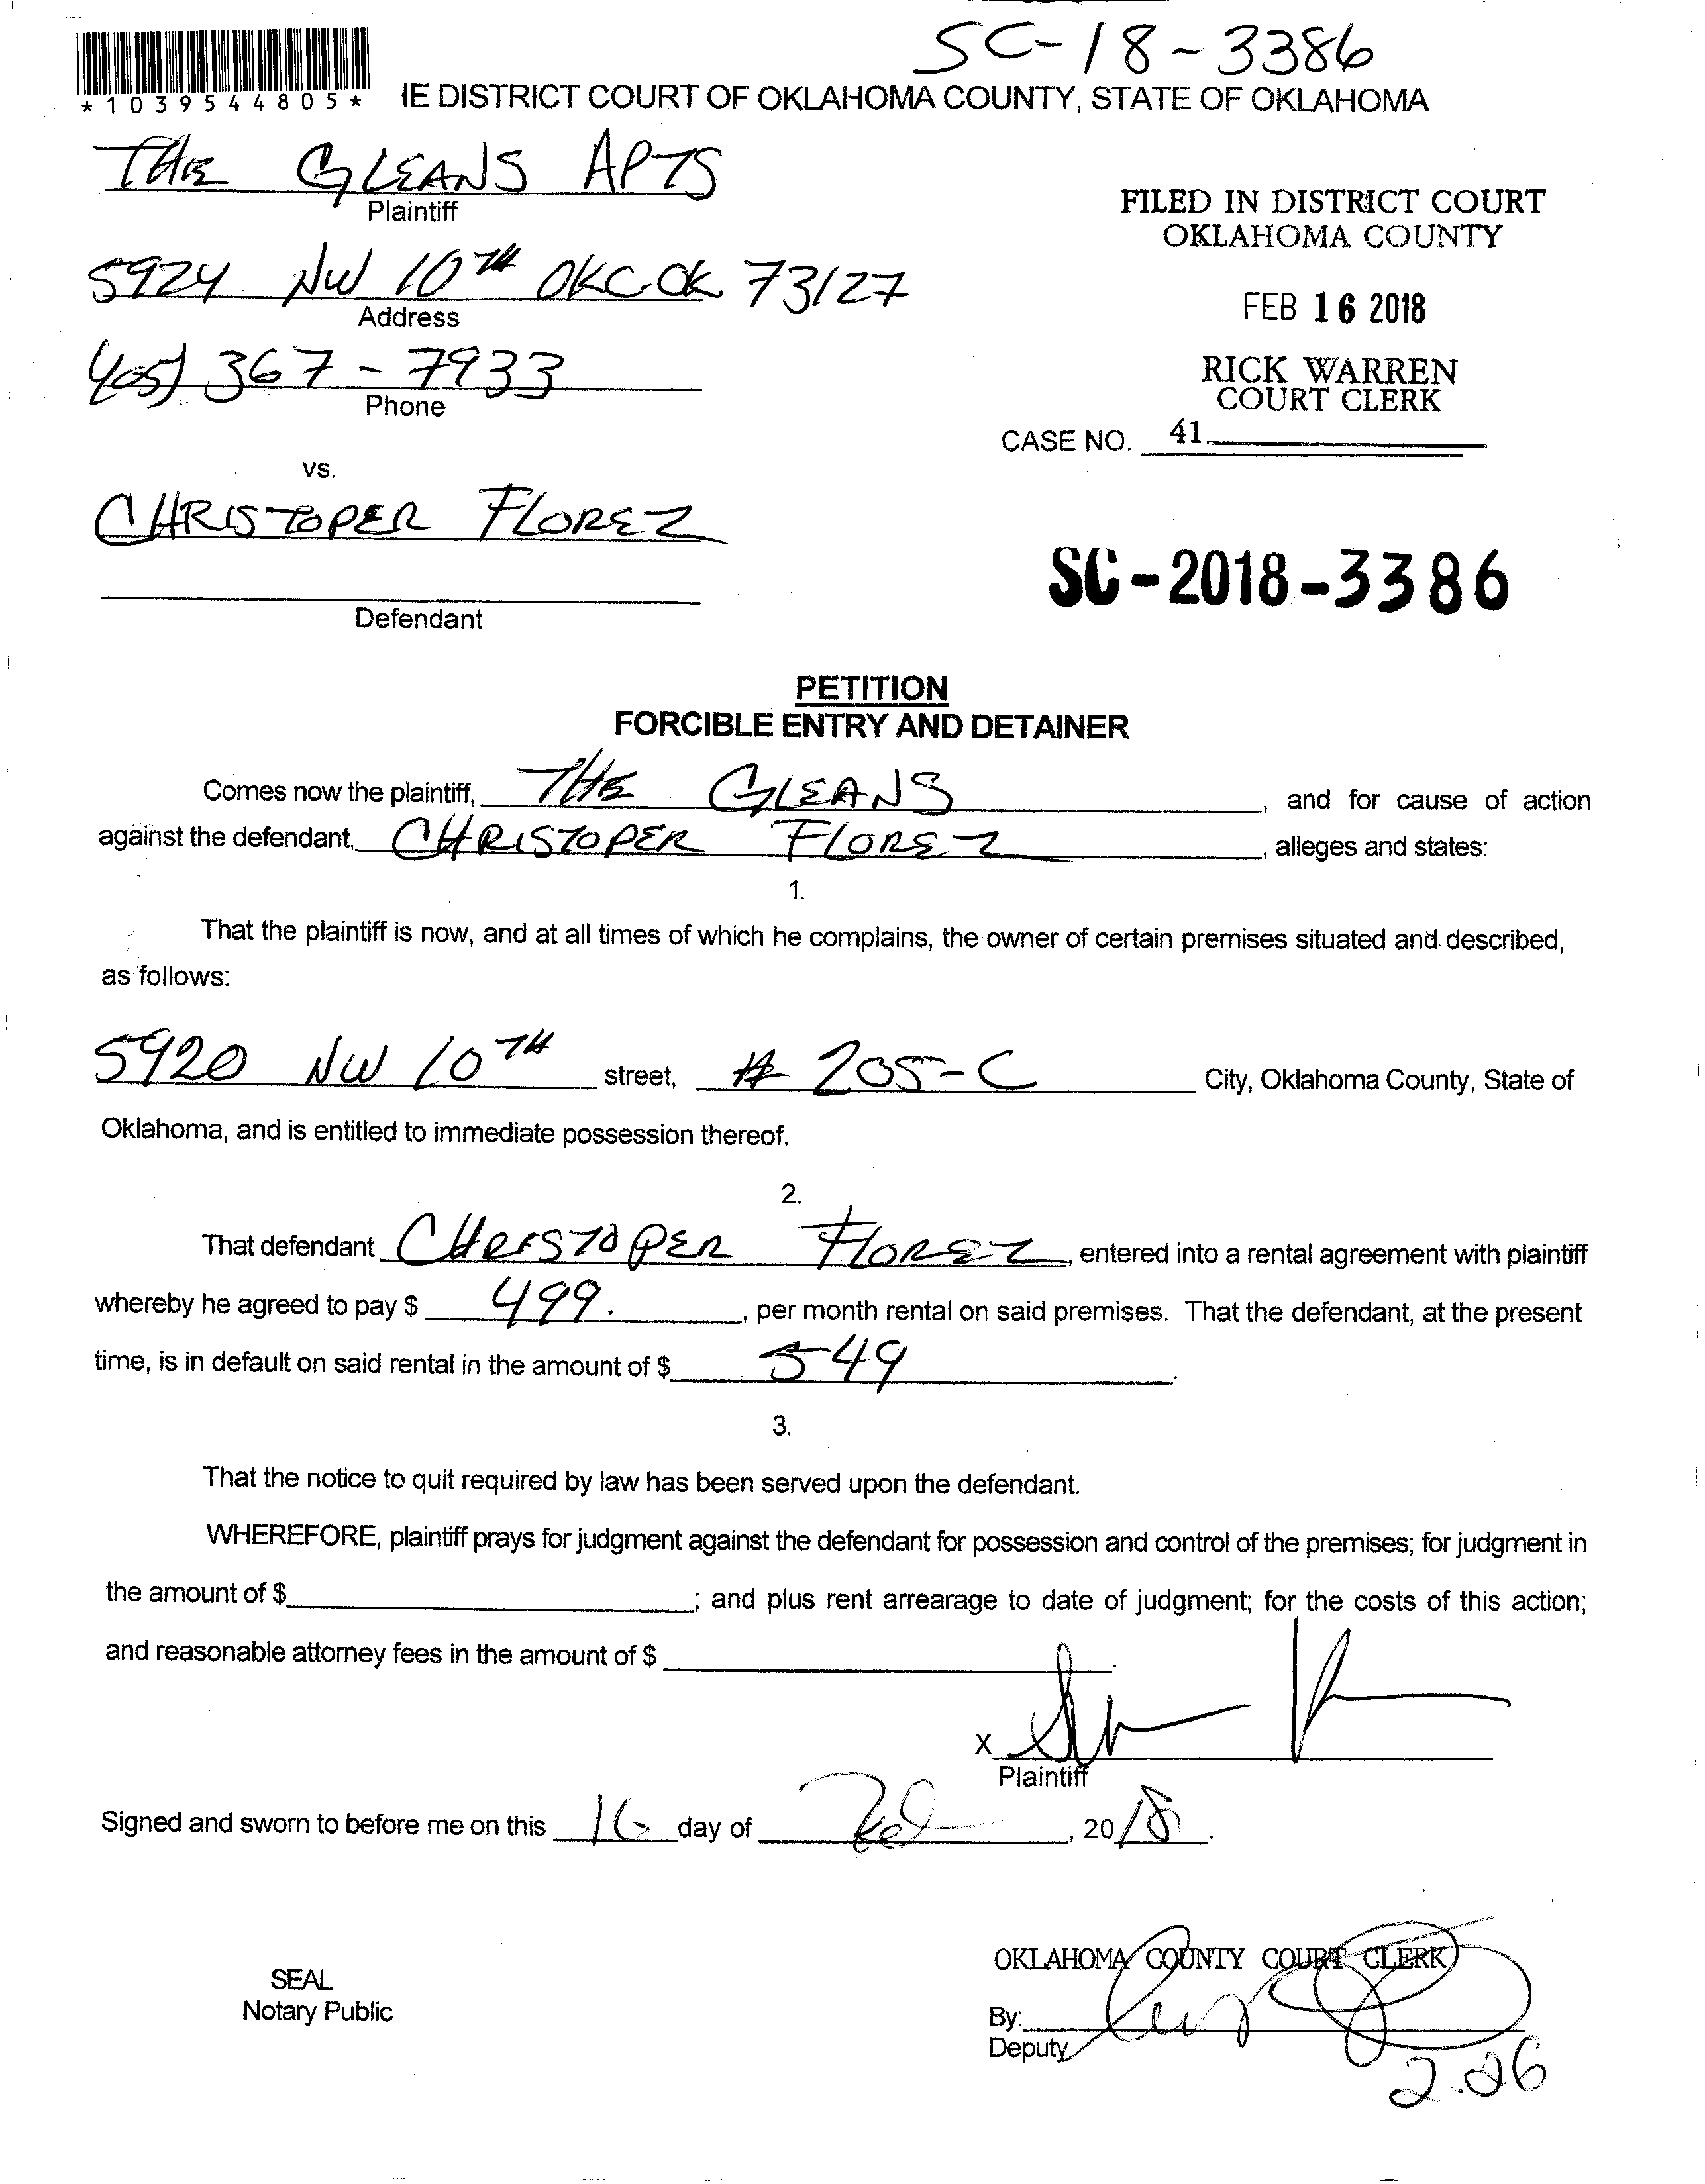 SC-18-3386
*1039544805*
IE DISTRICT COURT OF OKLAHOMA COUNTY, STATE OF OKLAHOMA
THE GLEANS APTS
Plaintiff
FILED IN DISTRICT COURT
OKLAHOMA COUNTY
5924 NW 10TH OKC OK 73127
Address
FEB 16 2018
405) 367-7933
Phone
RICK WARREN
COURT CLERK
CASE NO. 41
vs.
CHRISTOPER FLOREZ
SC-2018-3386
Defendant
PETITION
FORCIBLE ENTRY AND DETAINER
Comes now the plaintiff, THE GLEANS, and for cause of action
against the defendant, CHRISTOPER FLOREZ, alleges and states:
1.
That the plaintiff is now, and at all times of which he complains, the owner of certain premises situated and described,
as follows:
5920 NW 10TH street, # 205-C City, Oklahoma County, State of
Oklahoma, and is entitled to immediate possession thereof.
2.
That defendant CHRISTOPER FLOREZ, entered into a rental agreement with plaintiff
whereby he agreed to pay $ 499., per month rental on said premises. That the defendant, at the present
time, is in default on said rental in the amount of $ 549.
3.
That the notice to quit required by law has been served upon the defendant.
WHEREFORE, plaintiff prays for judgment against the defendant for possession and control of the premises; for judgment in
the amount of $ ; and plus rent arrearage to date of judgment; for the costs of this action;
and reasonable attorney fees in the amount of $ .
X
Plaintiff
Signed and sworn to before me on this 16 day of Feb, 2018.
SEAL
Notary Public
OKLAHOMA COUNTY COURT CLERK
By:
Deputy
2-26